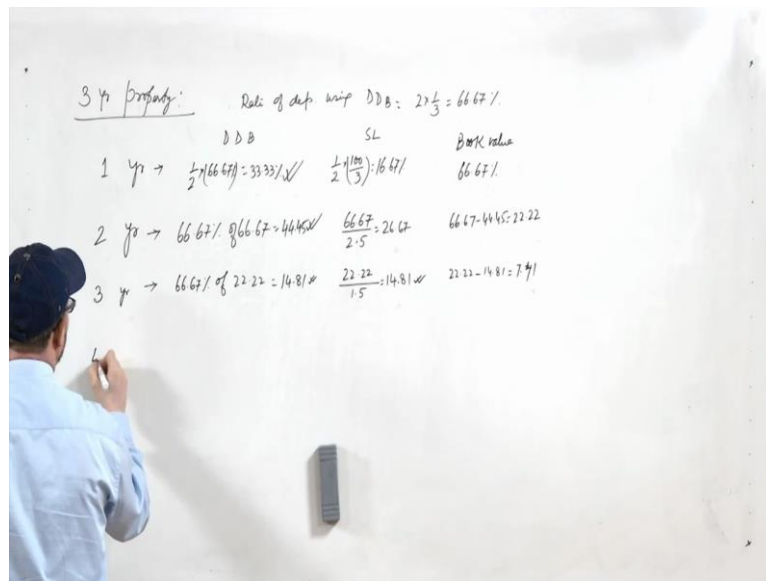 3 yr property: Rate of dep. using DDB = 2×1/3 = 66.67%
DDB SL Book value
1 yr → 1/2×(66.67%) = 33.33% ✓ 1/2×(100/3) = 16.67% 66.67%
2 yr → 66.67% of 66.67 = 44.45 ✓ 66.67/2.5 = 26.67 66.67-44.45=22.22
3 yr → 66.67% of 22.22 = 14.81 ✓ 22.22/1.5 = 14.81 ✓ 22.22-14.81=7.41
4